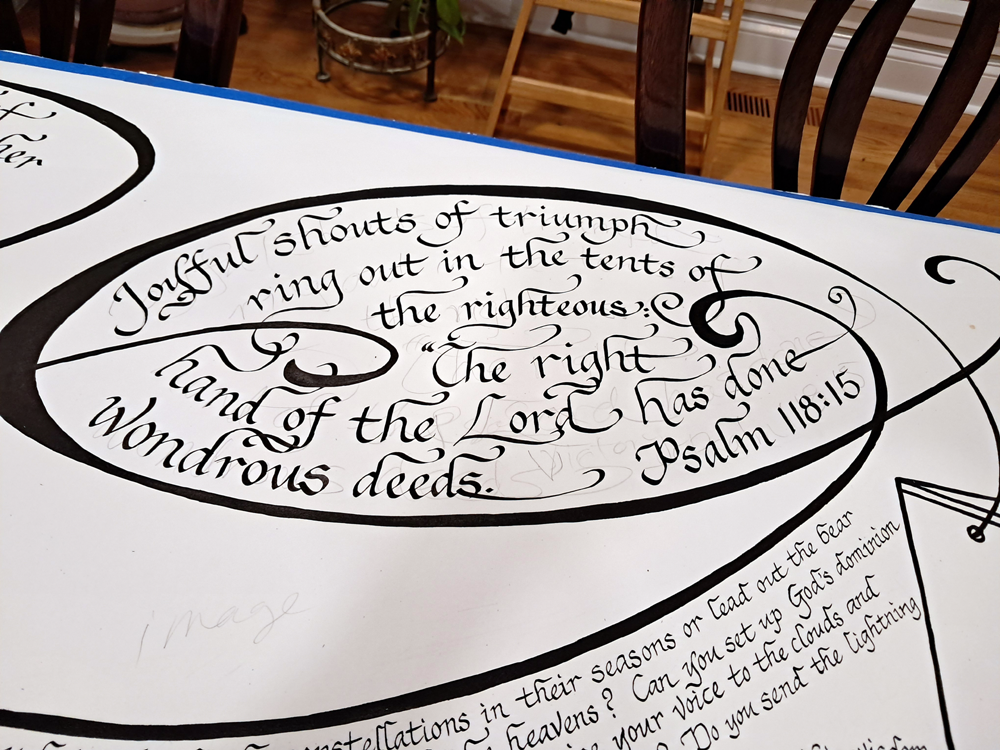 of
her
Joyful shouts of triumph
ring out in the tents of
the righteous:
“The right
hand of the Lord has done
Wondrous deeds.
Psalm 118:15
image
constellations in their seasons or lead out the bear
heavens? Can you set up God's dominion
your voice to the clouds and
? Do you send the lightning